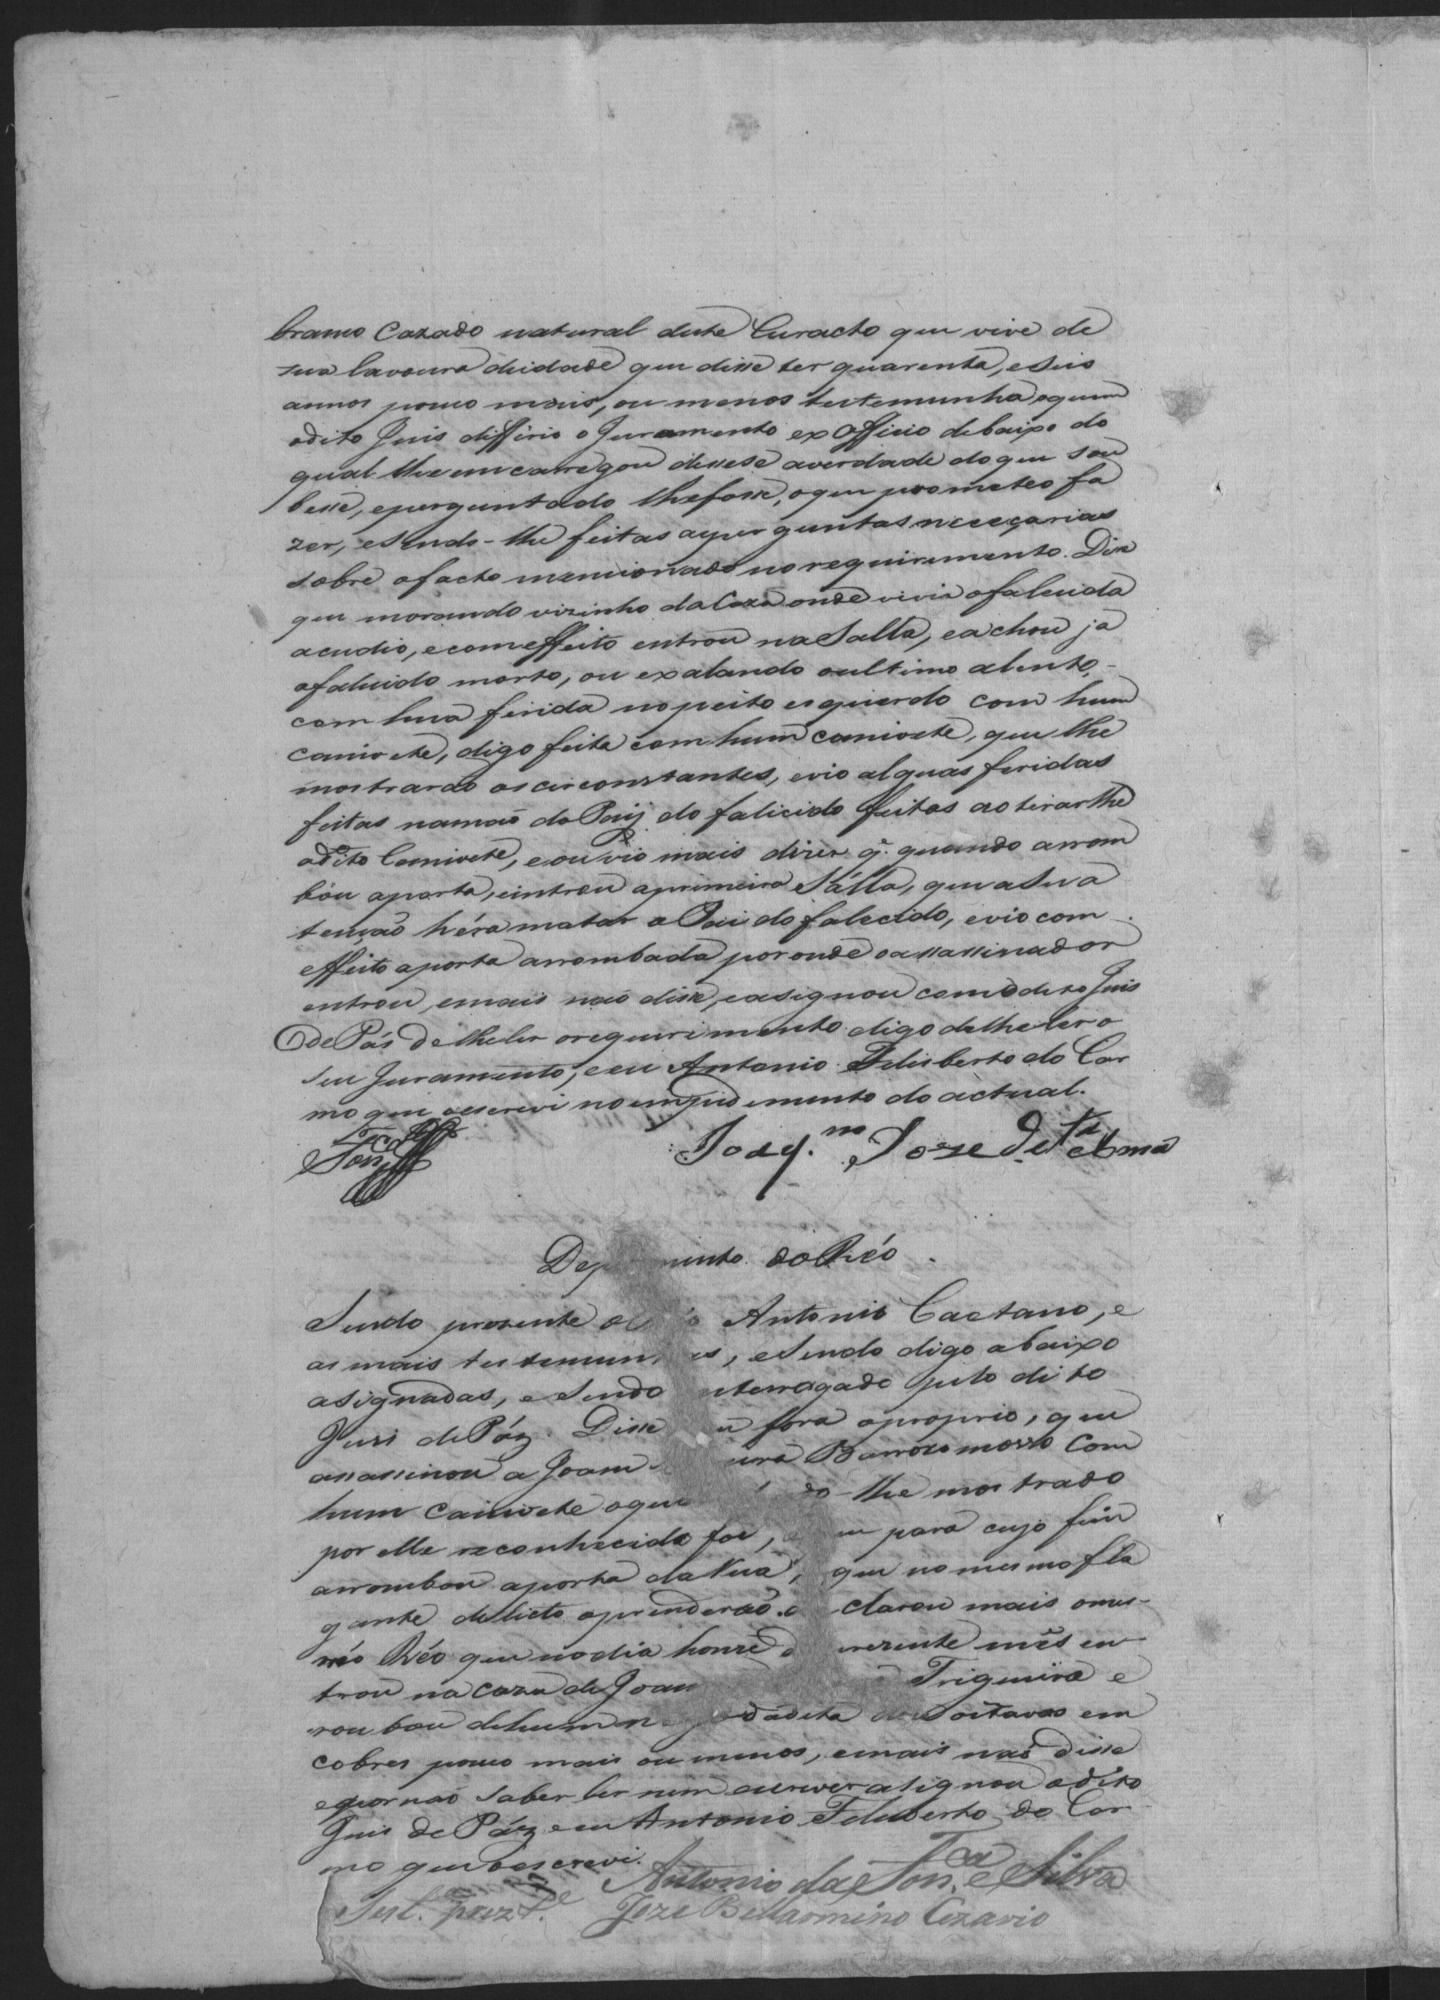 branco Cazado natural deste Curacto que vive de
sua lavoura deidade que disse ter quarenta, eseis
annos pouco mais, ou menos testemunha aquem
odito Juis differio o Juramento exOfficio debaixo do
qual lhe emcarregou dissese averdade doque sou
besse, eperguntado lhefosse, oque prometeo fa
zer, esendo-lhe feitas asperguntas neceçarias
sobre ofacto mencionado norequirimento. Disse
que morando vizinho daCaza onde vivia ofalecida
acudio, ecomeffeito entrou naSalla, eachou ja
ofalecido morto, ou exalando oultimo alento,
com huã ferida nopeito esquierdo com hum
canivete, digo feita com hum canivete, que lhe
mostrarão oscirconstantes, evio alguãs feridas
feitas namaõ do Paij do falicido feitas ao tirarlhe
odito Canivete, eouvio mais dizer q. quando arrom
bou aporta, eintrou aprimeira Sálla, que asua
tençaõ héra matar o Pai do falecido, evio com
effeito aporta arrombada poronde oassassinador
entrou, emais naõ disse, easignou com odito Juis
de Pás delheler orequirimento digo delheler o
seu Juramento, eeu Antonio Felisberto do Car
mo que oescrevi noempidimento do actual.
Joaq.m Joze de
Depoimento do Réo.
Sendo prezente o Antonio Caetano, e
as mais testemunhas, esendo digo abaixo
asignadas, e sendo enterrogado pelo dito
Juis de Páz. Disse que fora oproprio, que
assassinou a Joam Barrozo morto com
hum canivete oque do-lhe mostrado
por elle reconhecido foi, para cujo fim
arrombou aporta da Rua, que no mesmo fla
gante delicto oprenderaõ. declarou mais omes-
mo Réo que nodia honze do prezente mês en
trou na caza de Joam Trigueira e
roubou dehum oitavas em
cobres pouco mais ou menos, emais naõ disse
epornaõ saber ler nem escrever asignou odito
Juis de Páz eeu Antonio Feluberto do Car
mo que oescrevi.
Antonio da Fon.ca e Silva
Joze Bellarmino Cezario